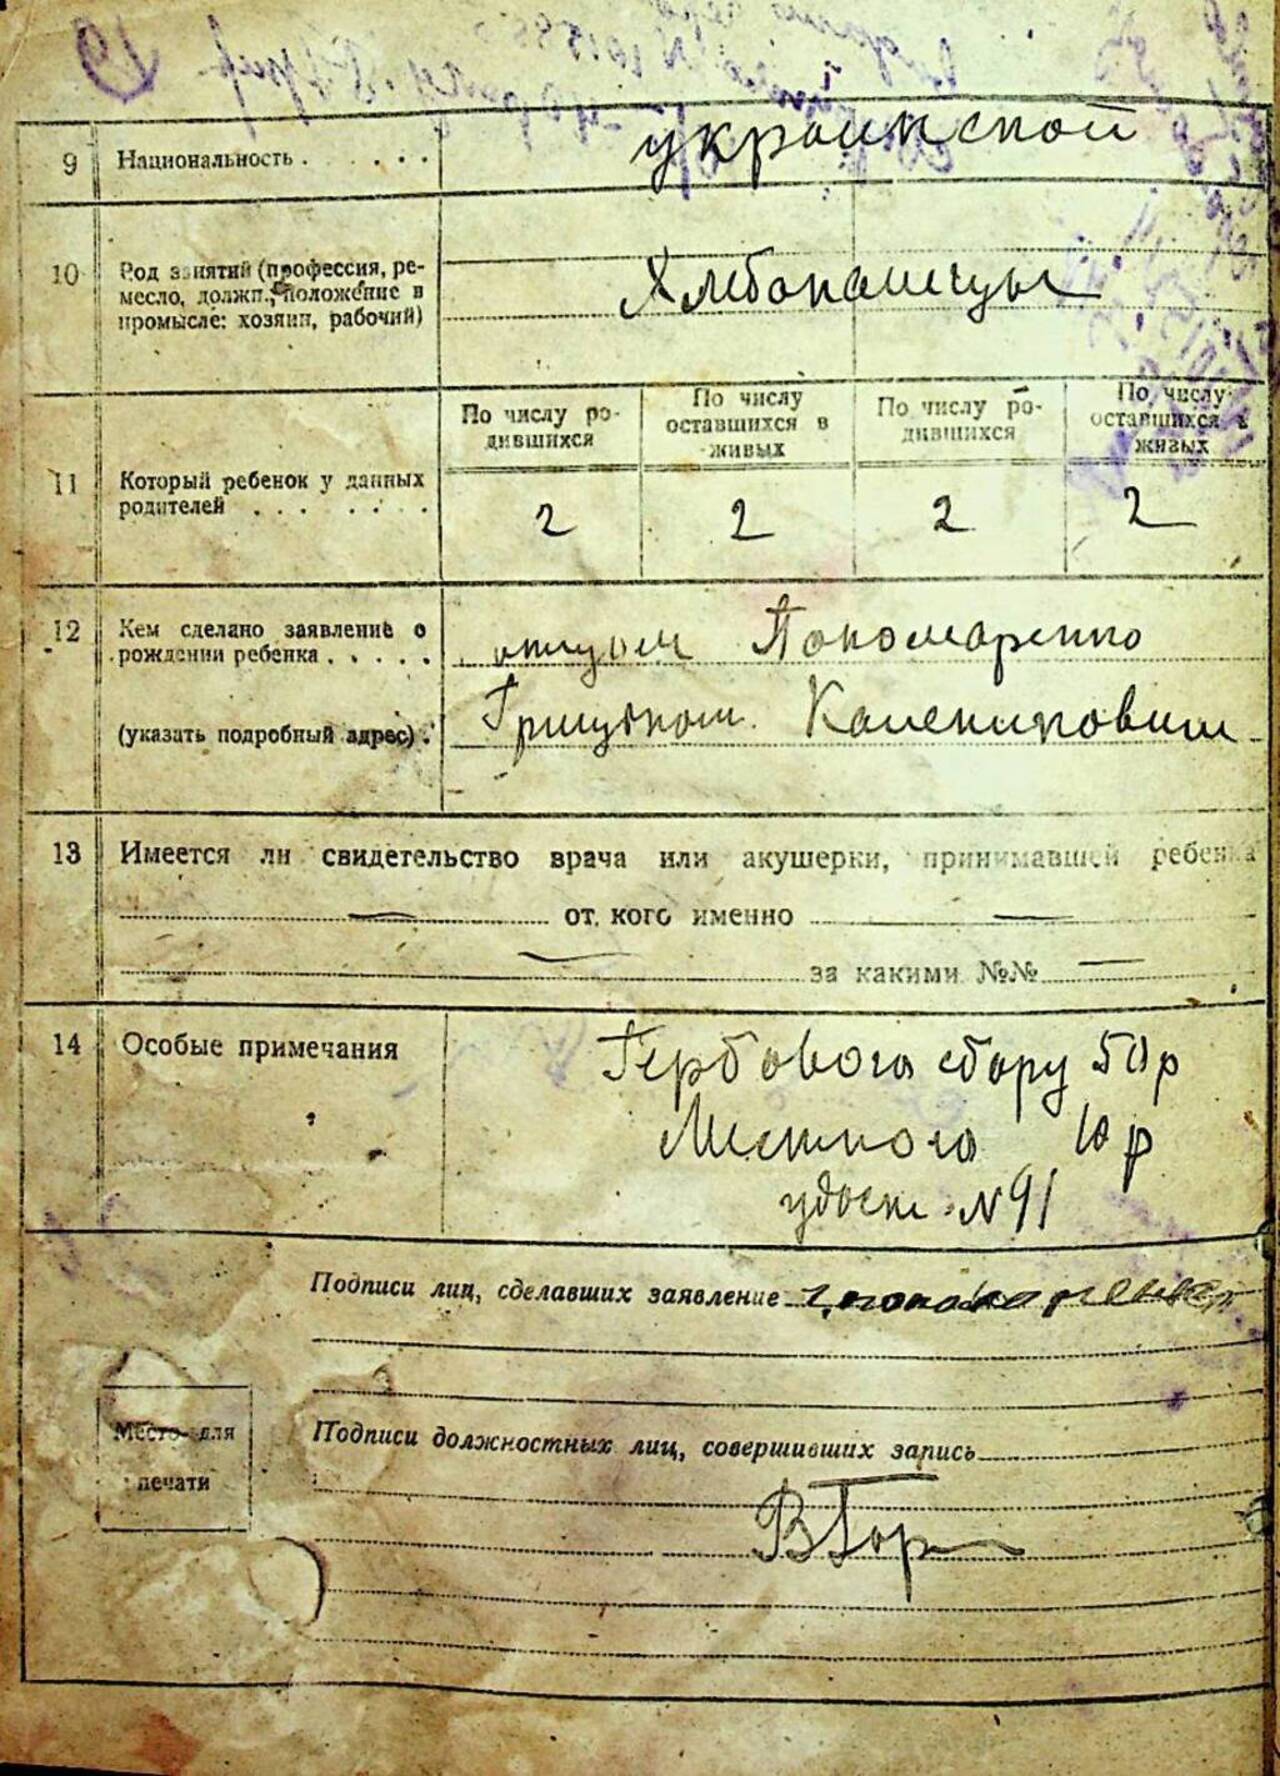 9 Национальность . . . . . . украинской
10 Род занятий (профессия, ре-
месло, должн., положение в
промысле: хозяин, рабочий)
Хлебопашецы
По числу ро-
дившихся
По числу
оставшихся в
живых
По числу ро-
дившихся
По числу
оставшихся в
живых
11 Который ребенок у данных
родителей . . . . . .
2 2 2 2
12 Кем сделано заявление о
рождении ребенка . . . . .
(указать подробный адрес) .
отцом Пономаренко
Грицьком
13 Имеется ли свидетельство врача или акушерки, принимавшей ребенка
— от кого именно —
— за какими №№ —
14 Особые примечания
Гербового сбору 50 р
Местного 10 р
удост. N 91
Подписи лиц, сделавших заявление
Место для
печати
Подписи должностных лиц, совершивших запись
ВГор